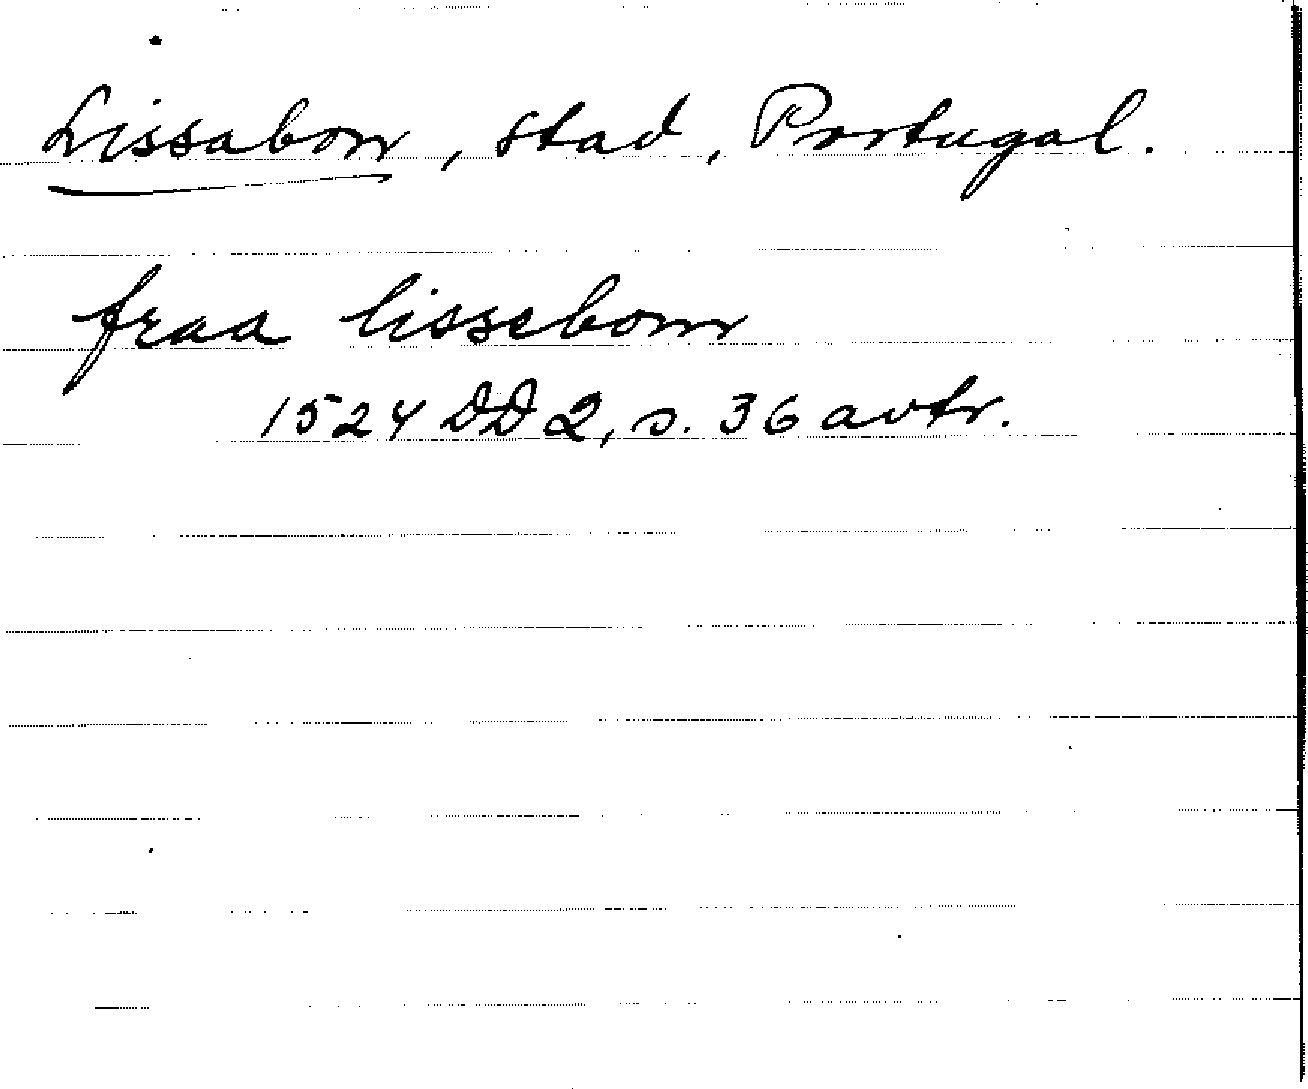 Lissabon, stad, Portugal.
fraa lissebonn
1524 DD 2, s. 36 avtr.